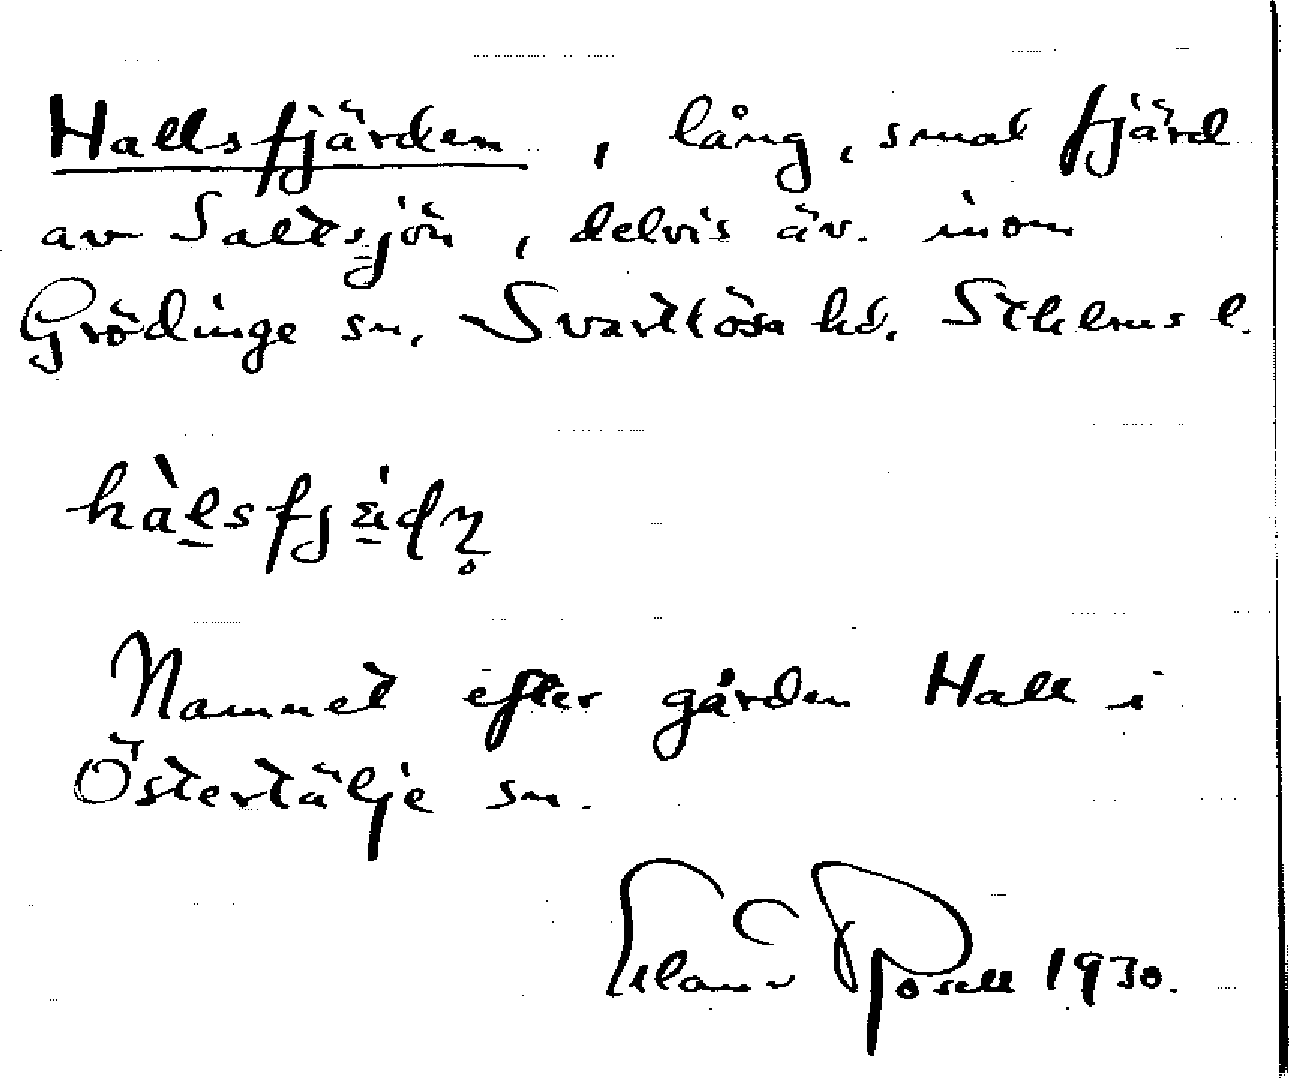 Hallsfjärden, lång, smal fjärd
av Saltsjön, delvis äv. inom
Grödinge sn, Svartlösa hd. Sthlms l.
hàlsfjä̀ḍn̥
Namnet efter gården Hall i
Östertälje sn.
Rosell 1930.